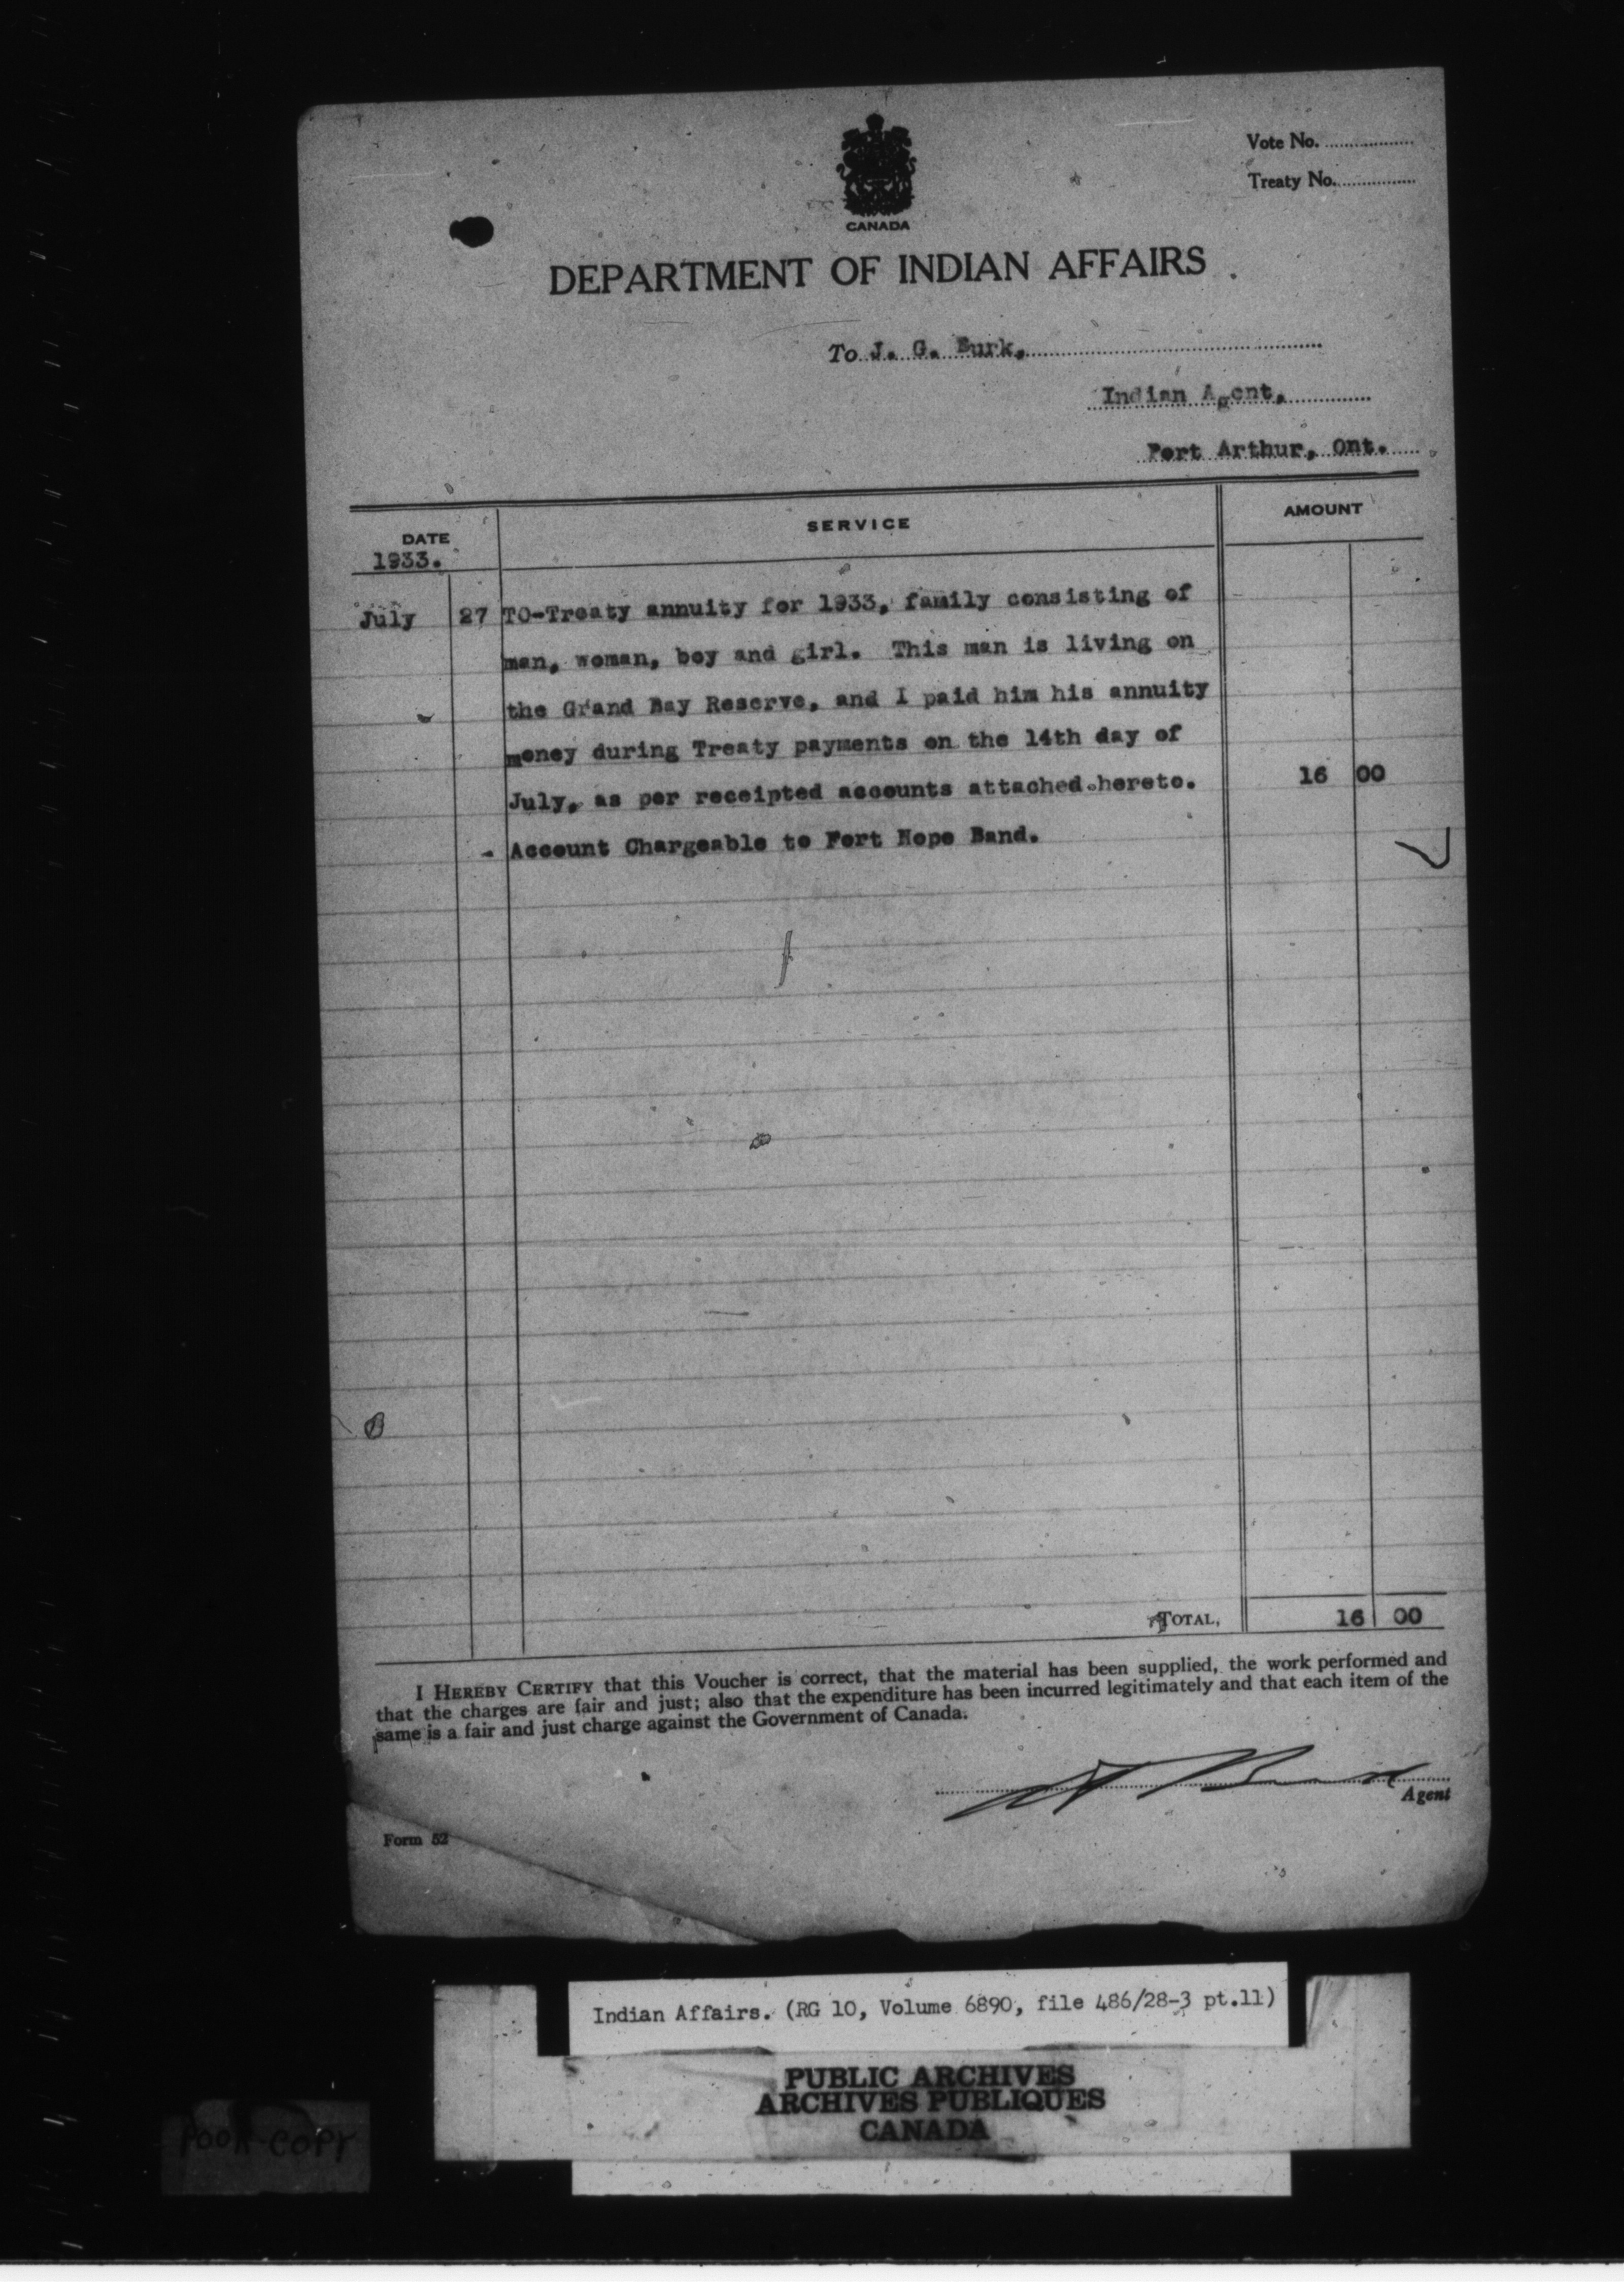 Vote No. ....................
Treaty No. ....................
CANADA
DEPARTMENT OF INDIAN AFFAIRS
To J. G. Burk,
Indian Agent,
Port Arthur, Ont.
DATE SERVICE AMOUNT
1933.
July 27 TO-Treaty annuity for 1933, family consisting of
man, woman, boy and girl. This man is living on
the Grand Bay Reserve, and I paid him his annuity
money during Treaty payments on the 14th day of
July, as per receipted accounts attached hereto. 16 00
- Account Chargeable to Fort Hope Band.
TOTAL, 16 00
I HEREBY CERTIFY that this Voucher is correct, that the material has been supplied, the work performed and
that the charges are fair and just; also that the expenditure has been incurred legitimately and that each item of the
same is a fair and just charge against the Government of Canada.
Agent
Form 52
Indian Affairs. (RG 10, Volume 6890, file 486/28-3 pt.11)
PUBLIC ARCHIVES
ARCHIVES PUBLIQUES
CANADA
POOR COPY